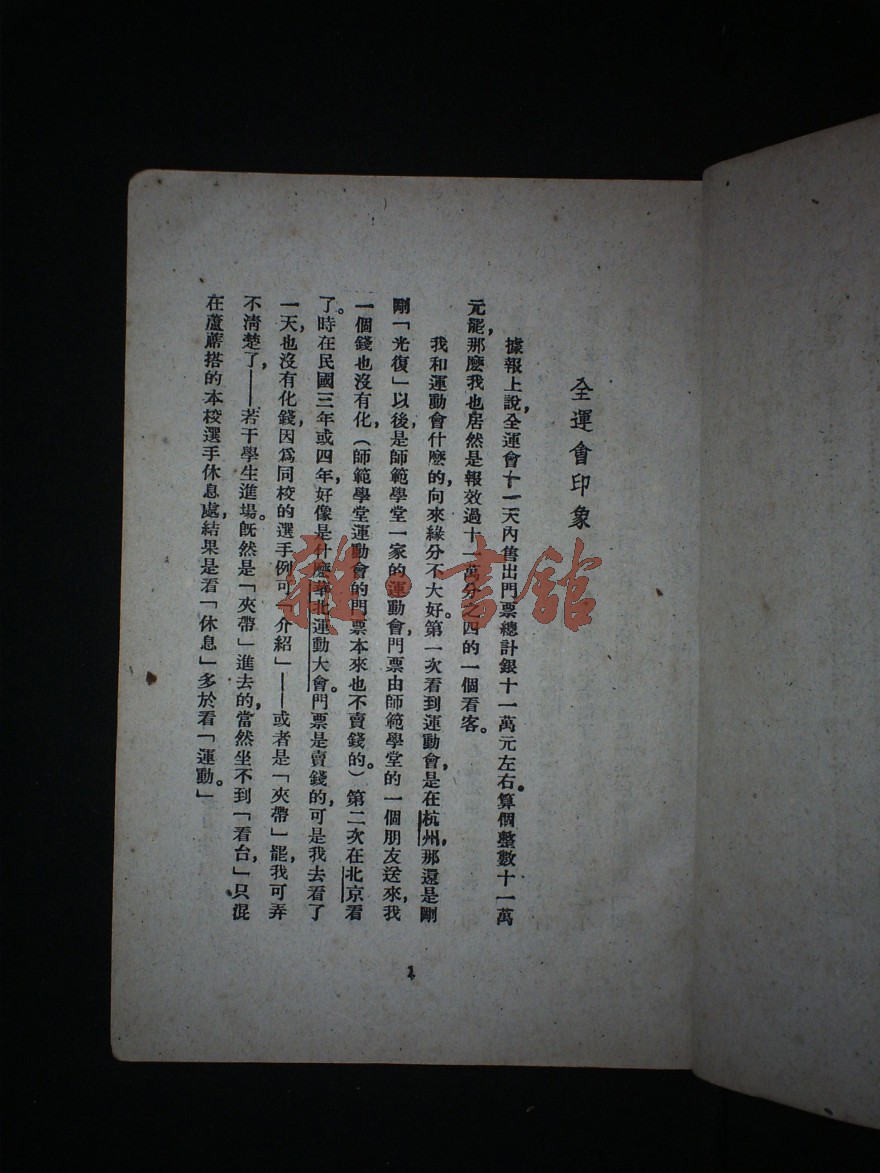 全運會印象
據報上說，全運會十一天內售出門票總計銀十一萬元左右。算個整數十一萬
元罷，那麼我也居然是報效過十一萬分之四的一個看客。
我和運動會什麼的，向來緣分不大好。第一次看到運動會，是在杭州，那還是剛
剛「光復」以後，是師範學堂一家的運動會，門票由師範學堂的一個朋友送來，我
一個錢也沒有化，（師範學堂運動會的門票本來也不賣錢的。）第二次在北京看
了。時在民國三年或四年，好像是什麼華北運動大會。門票是賣錢的，可是我去看了
一天，也沒有化錢，因爲同校的選手例可「介紹」——或者是「夾帶」罷，我可弄
不清楚了——若干學生進場。既然是「夾帶」進去的，當然坐不到「看台，」只混
在蘆蓆搭的本校選手休息處，結果是看「休息」多於看「運動。」
1
雜·書館